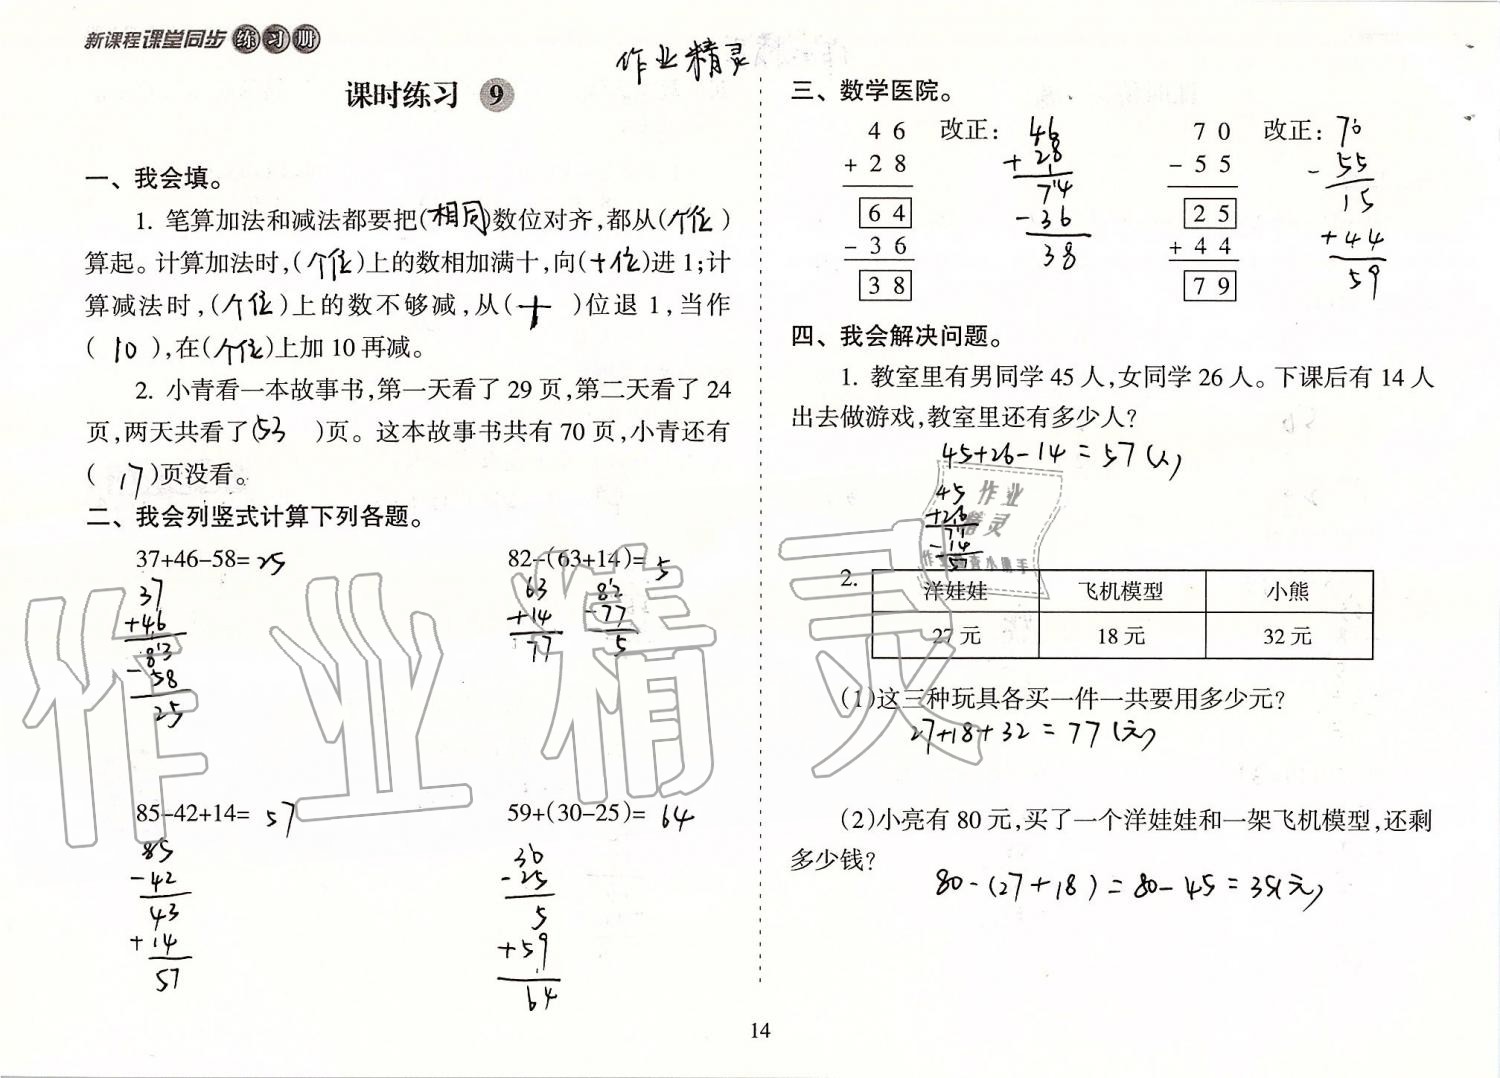 新课程课堂同步练习册
作业精灵
课时练习 9
一、我会填。
1. 笔算加法和减法都要把(相同)数位对齐,都从(个位)
算起。计算加法时,(个位)上的数相加满十,向(十位)进1;计
算减法时,(个位)上的数不够减,从(十)位退1,当作
(10),在(个位)上加10再减。
2. 小青看一本故事书,第一天看了29页,第二天看了24
页,两天共看了(53)页。这本故事书共有70页,小青还有
(17)页没看。
二、我会列竖式计算下列各题。
37+46-58=25 82-(63+14)=5
37 63 82
+46 +14 -77
83 77 5
-58
25
85-42+14=57 59+(30-25)=64
85 30
-42 -25
43 5
+14 +59
57 64
三、数学医院。
46 改正: 46 70 改正: 70
+28 +28 -55 -55
64 74 25 15
-36 -36 +44 +44
38 38 79 59
四、我会解决问题。
1. 教室里有男同学45人,女同学26人。下课后有14人
出去做游戏,教室里还有多少人?
45+26-14=57(人)
45
+26
71
-14
57
2.
洋娃娃 飞机模型 小熊
27元 18元 32元
(1)这三种玩具各买一件一共要用多少元?
27+18+32=77(元)
(2)小亮有80元,买了一个洋娃娃和一架飞机模型,还剩
多少钱?
80-(27+18)=80-45=35(元)
14
作业精灵
作业
精灵